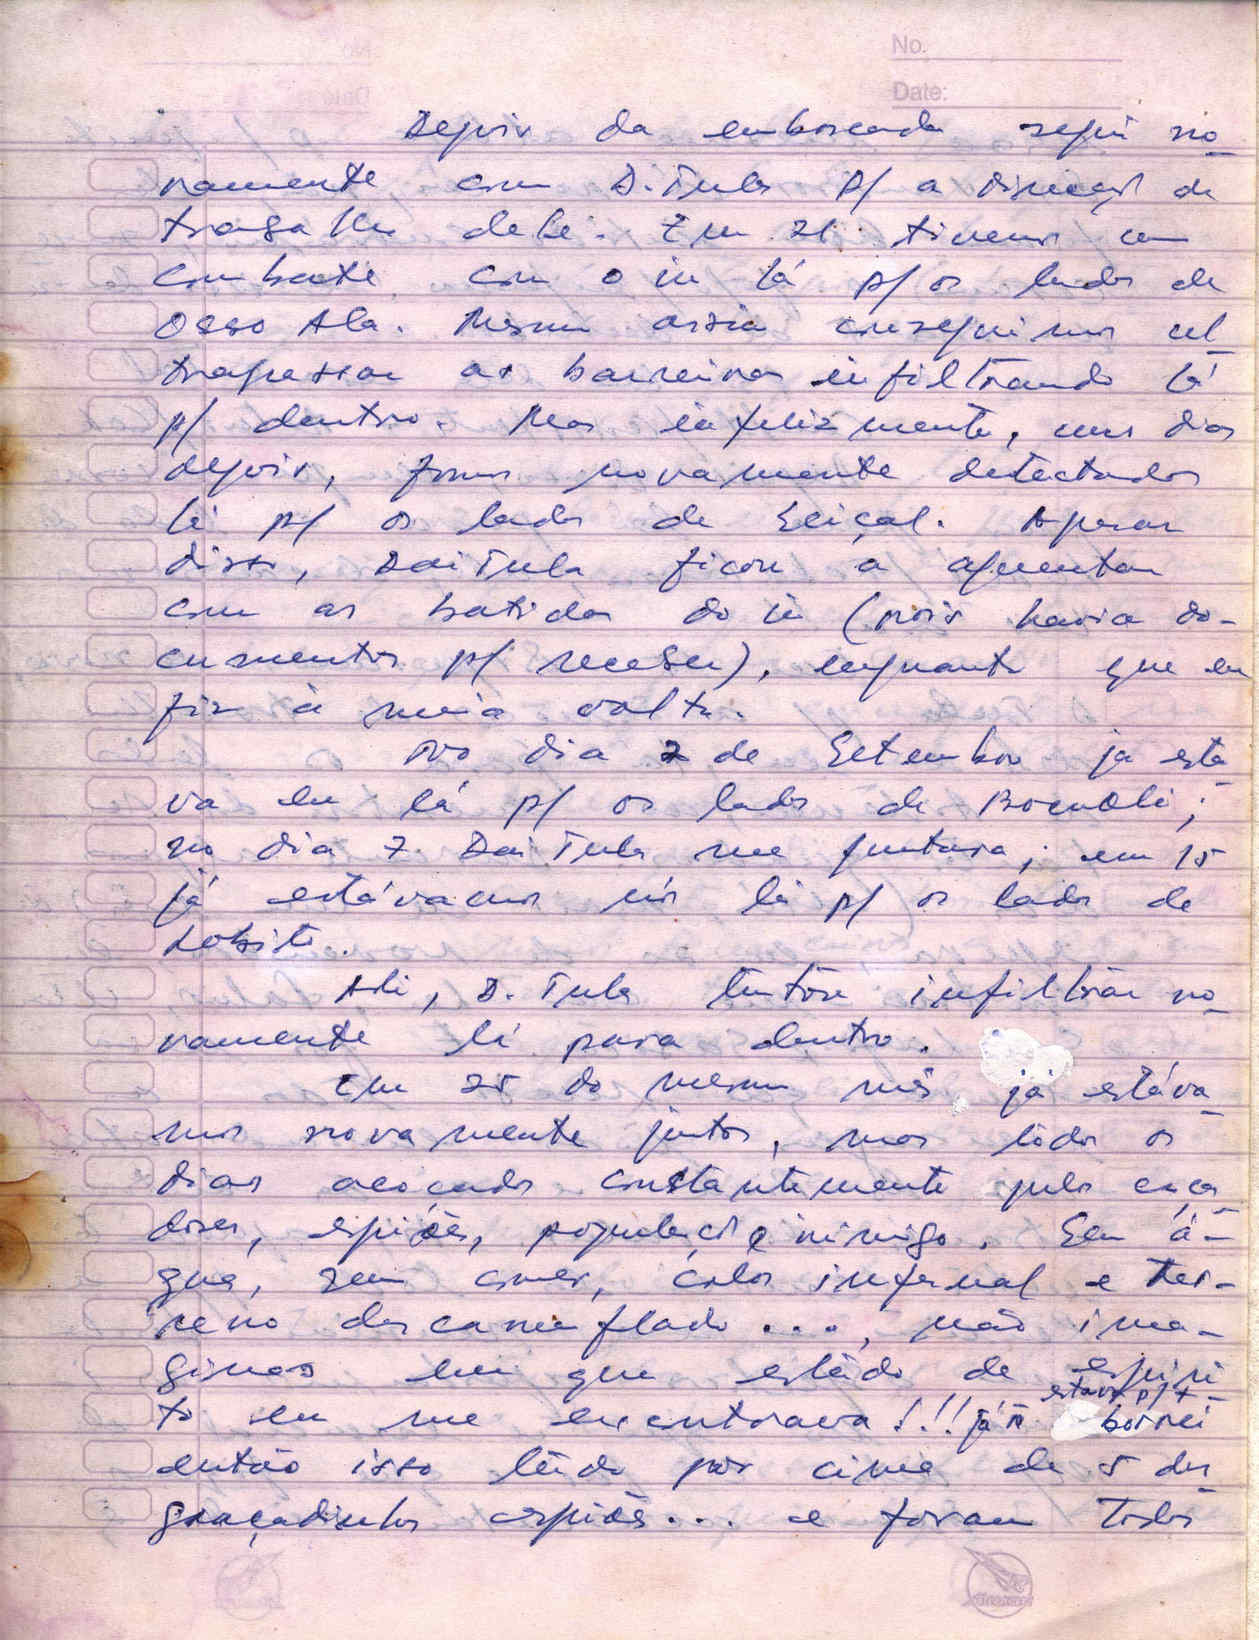 No.
Date:
Depois da emboscada segui no-
vamente com D.Tula p/ a direcção de
trabalho dele. Em 26 tivemos um
combate com o in lá p/ os lados de
Osso Ala. Mesmo assim conseguimos ul-
trapassar as barreiras infiltrando lá
p/ dentro. Mas infelizmente, uns dias
depois, fomos novamente detectados
lá p/ os lados de Seiçal. Apesar
disso, DaiTula ficou a aguentar
com as batidas do in (pois havia do-
cumentos p/ receber), enquanto que eu
fiz a meia volta.
No dia 2 de Setembro ja esta-
va eu lá p/ os lados de Bocu Oli;
no dia 7 DaiTula me juntara; em 15
já estávamos nós lá p/ os lados de
Lobito.
Ali, D. Tula tentou infiltrar no-
vamente lá para dentro.
Em 25 do mesmo mês, já estáva-
mos novamente juntos, mas todos os
dias acoçados constantemente pelos caça-
dores, espiões, população e inimigo. Sem á-
gua, sem comer, calor infernal e ter-
reno descamuflado..., não ima-
ginas em que estado de espiri-
to eu me encontrava!!! já ñ estava p/ +
borrei
então isso tudo por cima de 5 des-
graçadinhos espiões... e foram todos